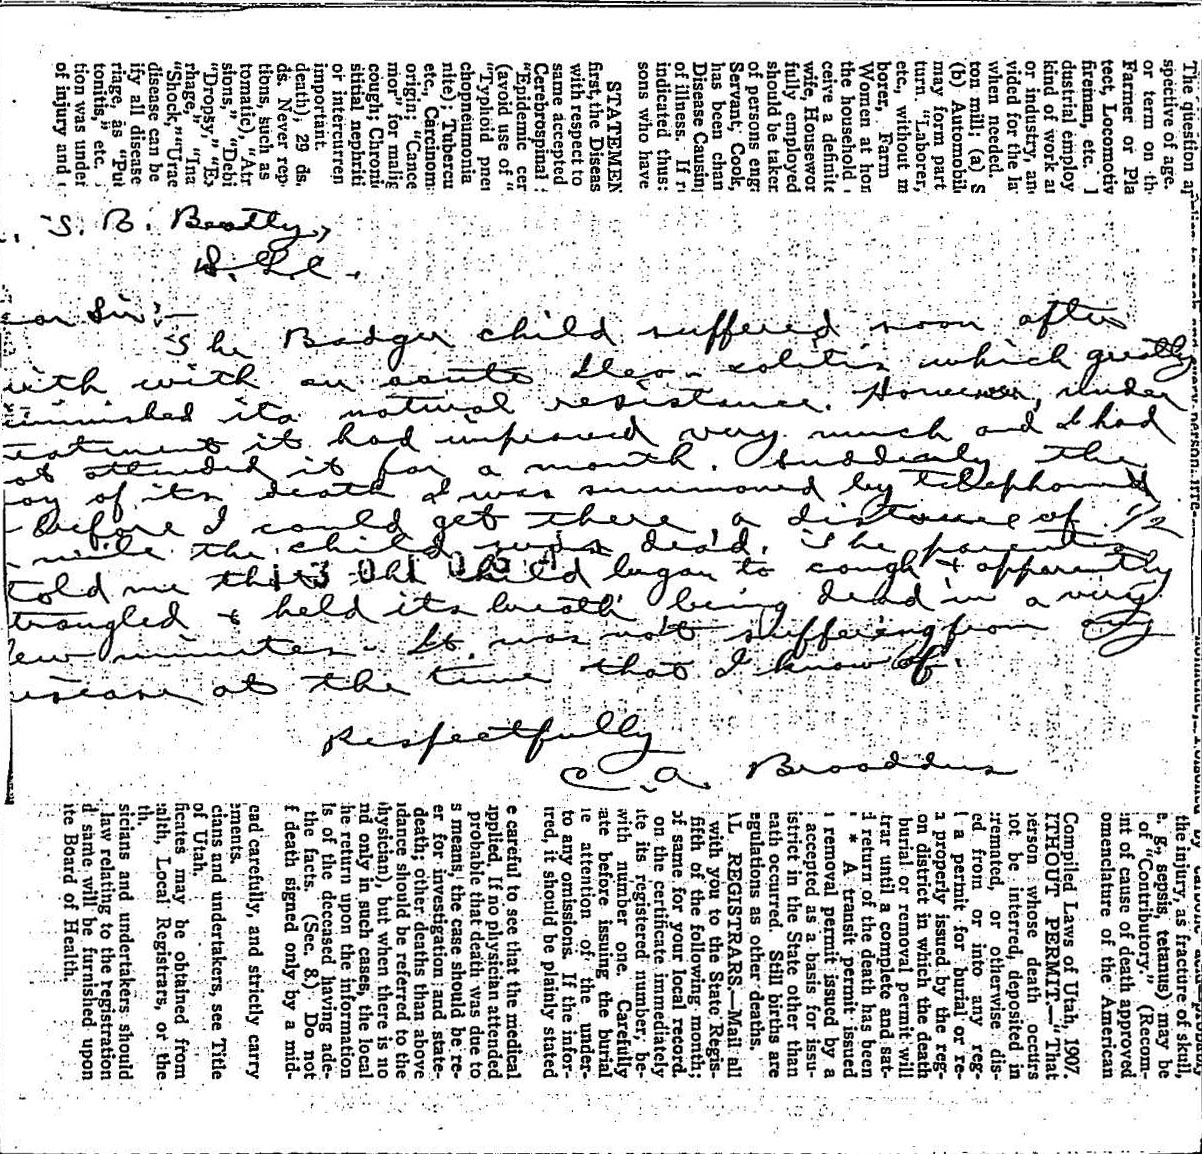 The question ap
spective of age.
or term on th
Farmer or Pla
tect, Locomotiv
fireman, etc.
dustrial employ
kind of work a
or industry, an
vided for the la
when needed.
ton mill; (a) S
(b) Automobil
may form part
turn. "Laborer,
etc., without m
borer, Farm
Women at hom
the household
ceive a definite
wife, Housewor
fully employed
should be taken
of persons eng
Servant, Cook,
has been chan
Disease Causin
of illness. If r
indicated thus:
sons who have
STATEMEN
first, the Diseas
with respect to
same accepted
Cerebrospinal
"Epidemic cer
(avoid use of "
"Typhoid pneu
chopneumonia
nite); Tubercu
etc., Carcinom
origin; "Cance
mor" for malig
cough; Chroni
stitial nephriti
or intercurren
important.
death), 29 ds.
ds. Never rep
tions, such as
tomatic), "Atr
sions," "Debi
"Dropsy," "E
rhage," "Ina
"Shock," "Urae
disease can be
ify all disease
riage, as "Pu
tonitis," etc.
tion was under
of injury and
S. B. Beatty,
S. L. C.
ear Sir:—
The Badger child suffered soon after
with with an acute Ileo-colitis which greatly
iminished its natural resistance. However, under
eatment it had improved very much and I had
ot attended it for a month. Suddenly the
ay of its death I was summoned by telephone,
before I could get there a distance of 1/2
mile the child was dead. The parents
told me that the child began to cough & apparently
trangled & held its breath being dead in a very
few minutes. It was not suffering from any
isease at the time that I know of.
Respectfully
C. A. Broaddus
1301034
the injury, as fracture of skull,
e. g., sepsis, tetanus) may be
of "Contributory." (Recom-
nt of cause of death approved
omenclature of the American
Compiled Laws of Utah, 1907.
ITHOUT PERMIT—"That
person whose death occurs
not be interred, deposited in
remated, or otherwise dis-
ed from or into any reg-
a permit for burial or re-
a properly issued by the reg-
on district in which the death
burial or removal permit will
trar until a complete and sat-
d return of the death has been
* * A transit permit issued
removal permit issued by a
accepted as a basis for issu-
istrict in the State other than
eath occurred. Still births are
egulations as other deaths.
AL REGISTRARS.—Mail all
with you to the State Regis-
fifth of the following month;
of same for your local record.
on the certificate immediately
te its registered number, be-
with number one. Carefully
ate before issuing the burial
e attention of the under-
to any omissions. If the infor-
red, it should be plainly stated
e careful to see that the medical
applied. If no physician attended
probable that death was due to
s means, the case should be re-
er for investigation and state-
death; other deaths than above
dance should be referred to the
hysician), but when there is no
nd only in such cases, the local
he return upon the information
ls of the deceased having ade-
the facts. (Sec. 8.) Do not
f death signed only by a mid-
ead carefully, and strictly carry
ements.
cians and undertakers, see Title
of Utah.
ficates may be obtained from
ealth, Local Registrars, or the
th.
sicians and undertakers should
law relating to the registration
d same will be furnished upon
te Board of Health.